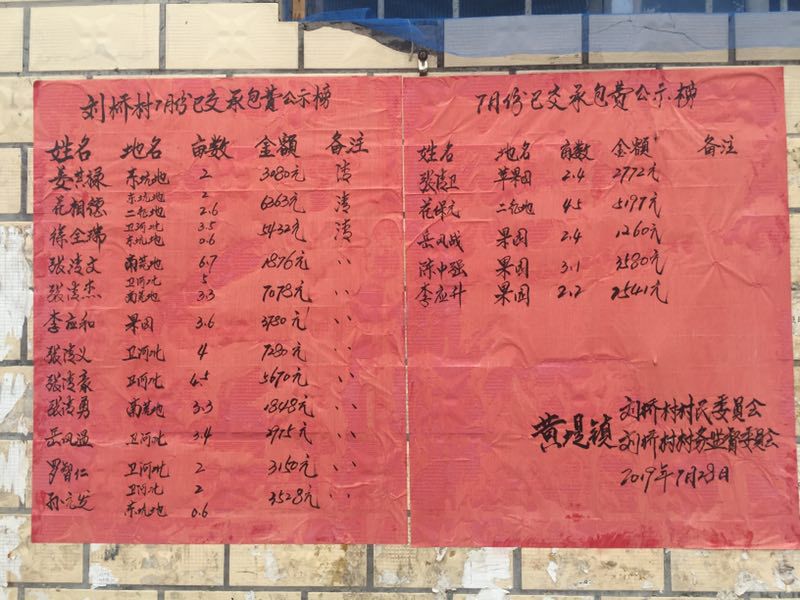 刘桥村7月份已交承包费公示榜
姓名 地名 亩数 金额 备注
姜其禄 东坑地 2 3080元 清
花相德 东坑地 2 二轮地 2.6 6363元 清
徐金瑞 卫河北 3.5 东坑地 0.6 5432元 清
张凌文 南荒地 6.7 1876元 〃
张凌杰 卫河北 5 南荒地 3.3 7078元 〃
李应和 果园 3.6 3780元 〃
张凌义 卫河北 4 7280元 〃
张凌豪 卫河北 4.5 5670元 〃
张凌勇 南荒地 3.3 1848元 〃
岳凤 卫河北 3.4 2975元 〃
罗智仁 卫河北 2 3150元 〃
孙 发 卫河北 2 东坑地 0.6 3528元 〃
7月份已交承包费公示榜
姓名 地名 亩数 金额 备注
张凌卫 苹果园 2.4 2772元
花保元 二轮地 4.5 5197元
岳凤战 果园 2.4 1260元
陈中强 果园 3.1 3580元
李应升 果园 2.2 2541元
黄堤镇
刘桥村村民委员会
刘桥村村务监督委员会
2019年7月28日